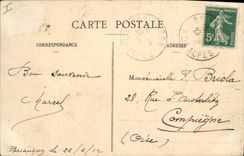 CARTE POSTALE
CORRESPONDANCE
ADRESSE
ALPES
5c
Bon Souvenir
Marcel
Briançon le 22/2/12
Mademoiselle T Briola
28, Rue d'Austerlitz
Compiègne
(Oise)